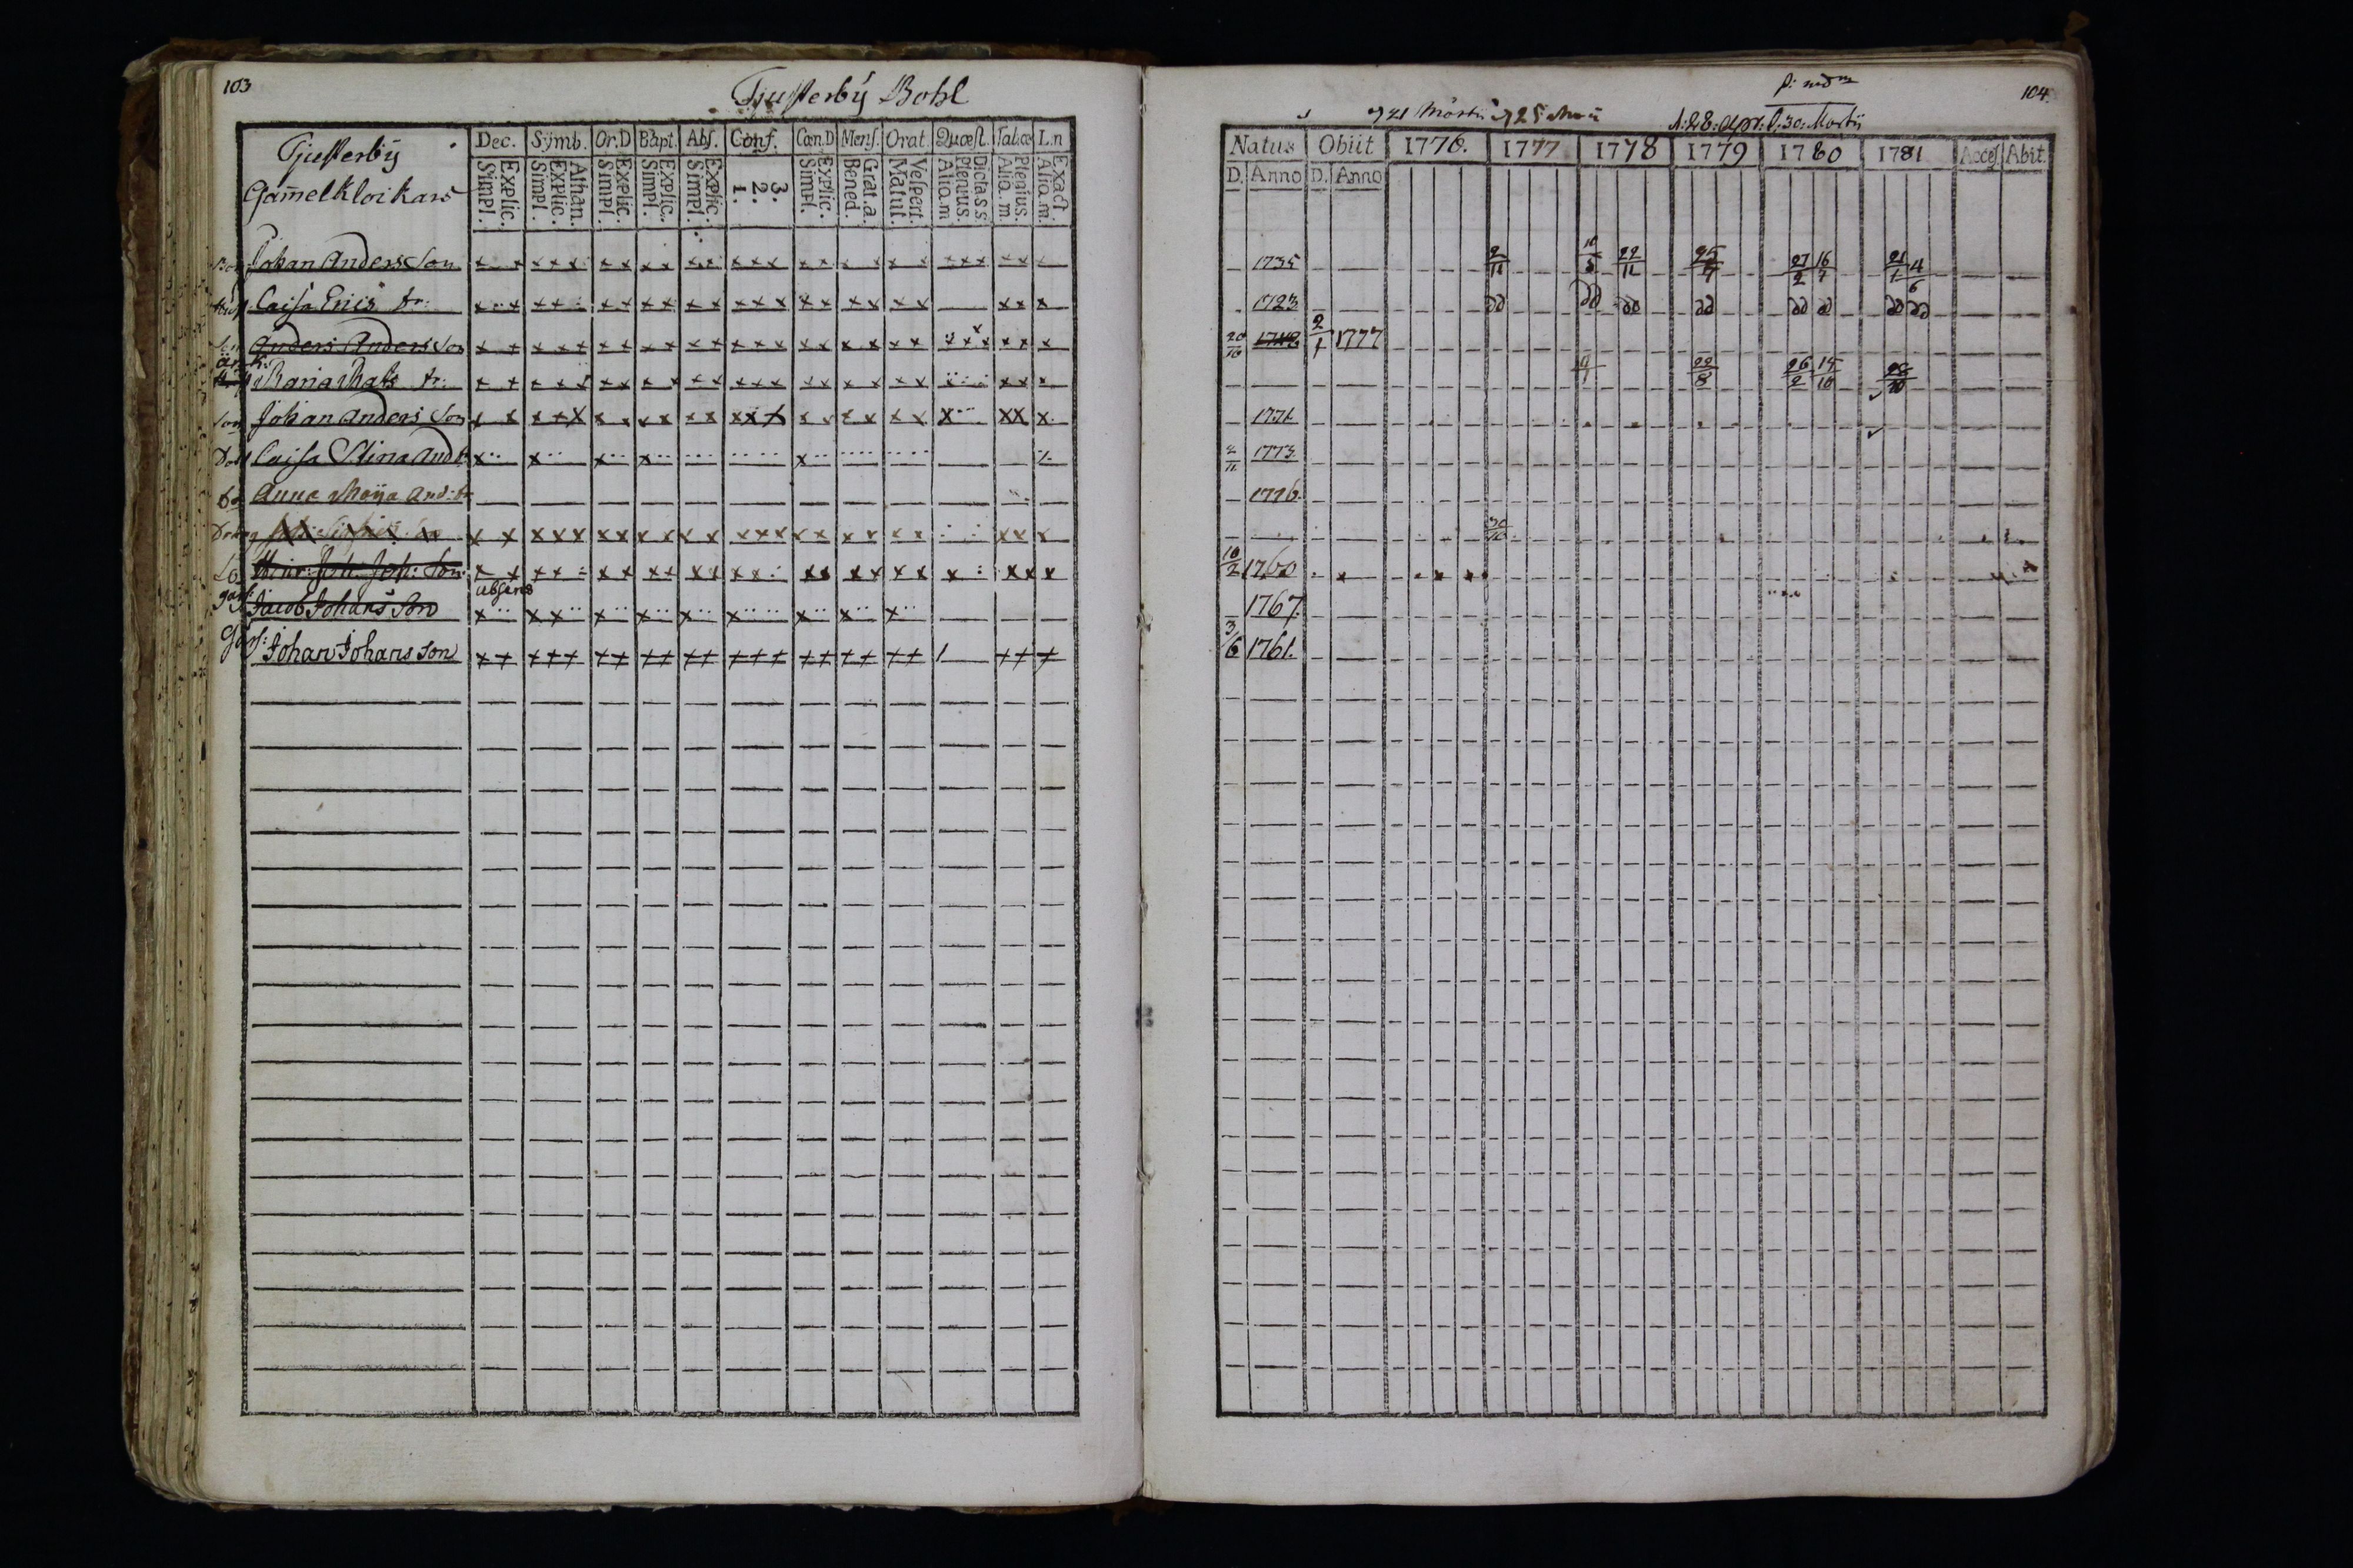 103
Tjusterby Bohl
Tjusterby
Gam̄elkloikars
Dec. Symb. Or.D Bapt. Abſ. Conf. Cœn.D Menſ. Orat. Quæſt. Tab.œ L.n
Simpl. Explic. Simpl. Explic. Athan. Simpl. Explic. Simpl. Explic. Simpl. Explic. 1. 2. 3. Simpl. Explic. Bened. Grat.a. Matut. Veſpert. Aliq.m Plenius. Dicta s.s. Aliq.m. Plenius. Aliq.m. Exact.
Johan Anders Son
Caisa Eriс dr:
Son Anders Anders Son
änk: Maria Mats dr:
Son Johan Anders Son
Caisa Stina And
Anna Maija And: dr
Dräng
Hinr: Joh: Son
absens
Jacob Johans Son
Johan Johans Son
104
21 Martii 25 Maii
d: 28: apr: 30: Martii
Natus Obiit 1776. 1777 1778 1779 1780 1781 Acceſ. Abit.
D. Anno D. Anno
1735 2/11 10/5 22/11 25/4 27/2 16/7 21/1 4/6
1723 dd dd dd dd dd dd dd dd
20/10 2/1 1777
22/8 26/2 15/10 28/10
1771
2/11 1773
1776
30/10
10/2 1760
1767.
3/6 1761.